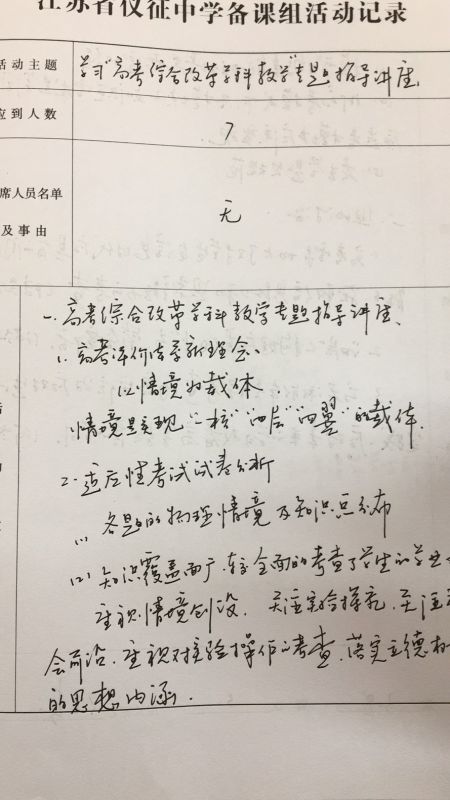 江苏省仪征中学备课组活动记录
活动主题
学习“高考综合改革学科教学”专题指导讲座
应到人数
7
席人员名单
及事由
无
一、高考综合改革学科教学专题指导讲座、
1、高考评价体系新理念、
(1)情境为载体
情境是实现“一核”“四层”“四翼”的载体.
2、适应性考试试卷分析
(1) 各题的物理情境及知识点分布
(2) 知识覆盖面广.较全面的考查了学生的学业
重视情境创设. 关注实验探究,关注
会前沿.重视对实验操作的考查.落实立德树
的思想内涵.